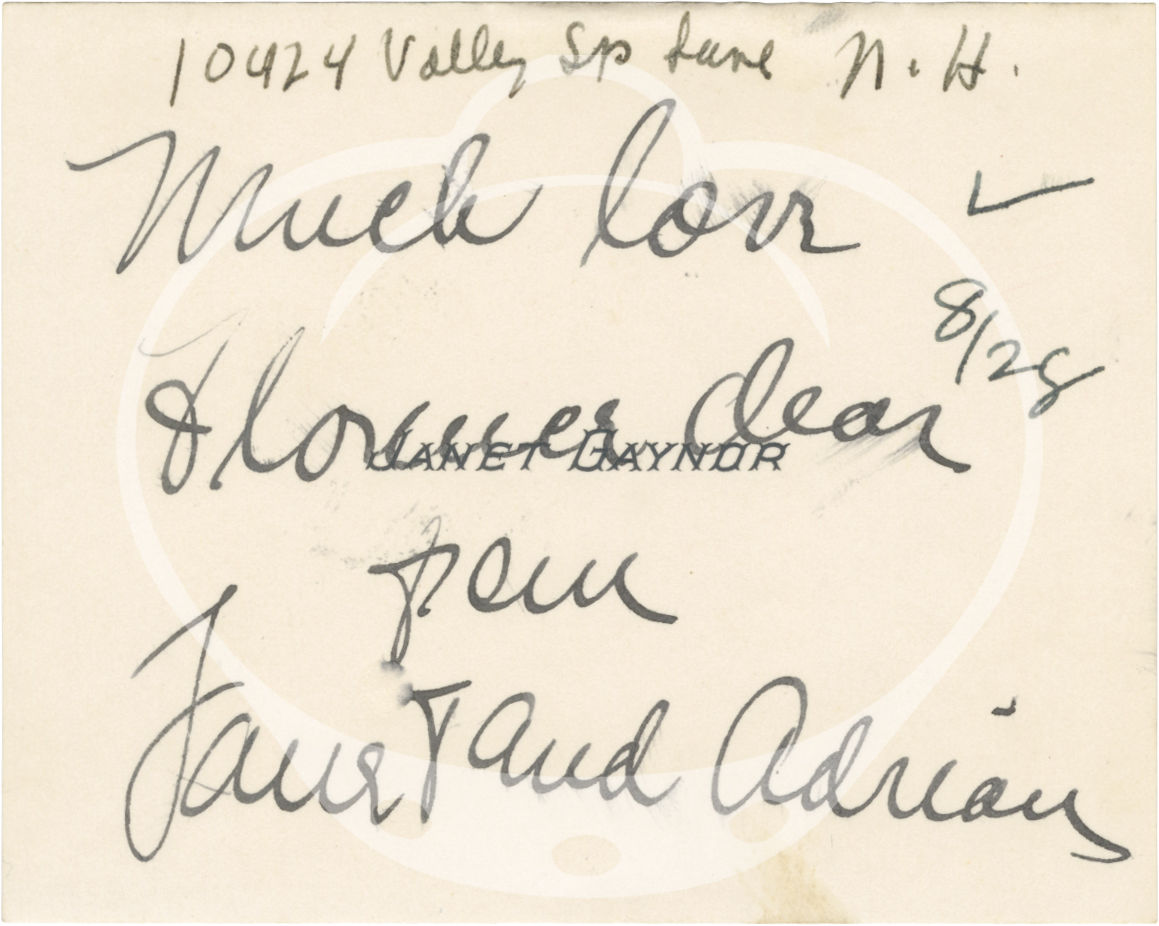 10424 Valley Sp Lane N. H.
Much love
8/28
Florence dear
JANET GAYNOR
from
Janet and Adrian